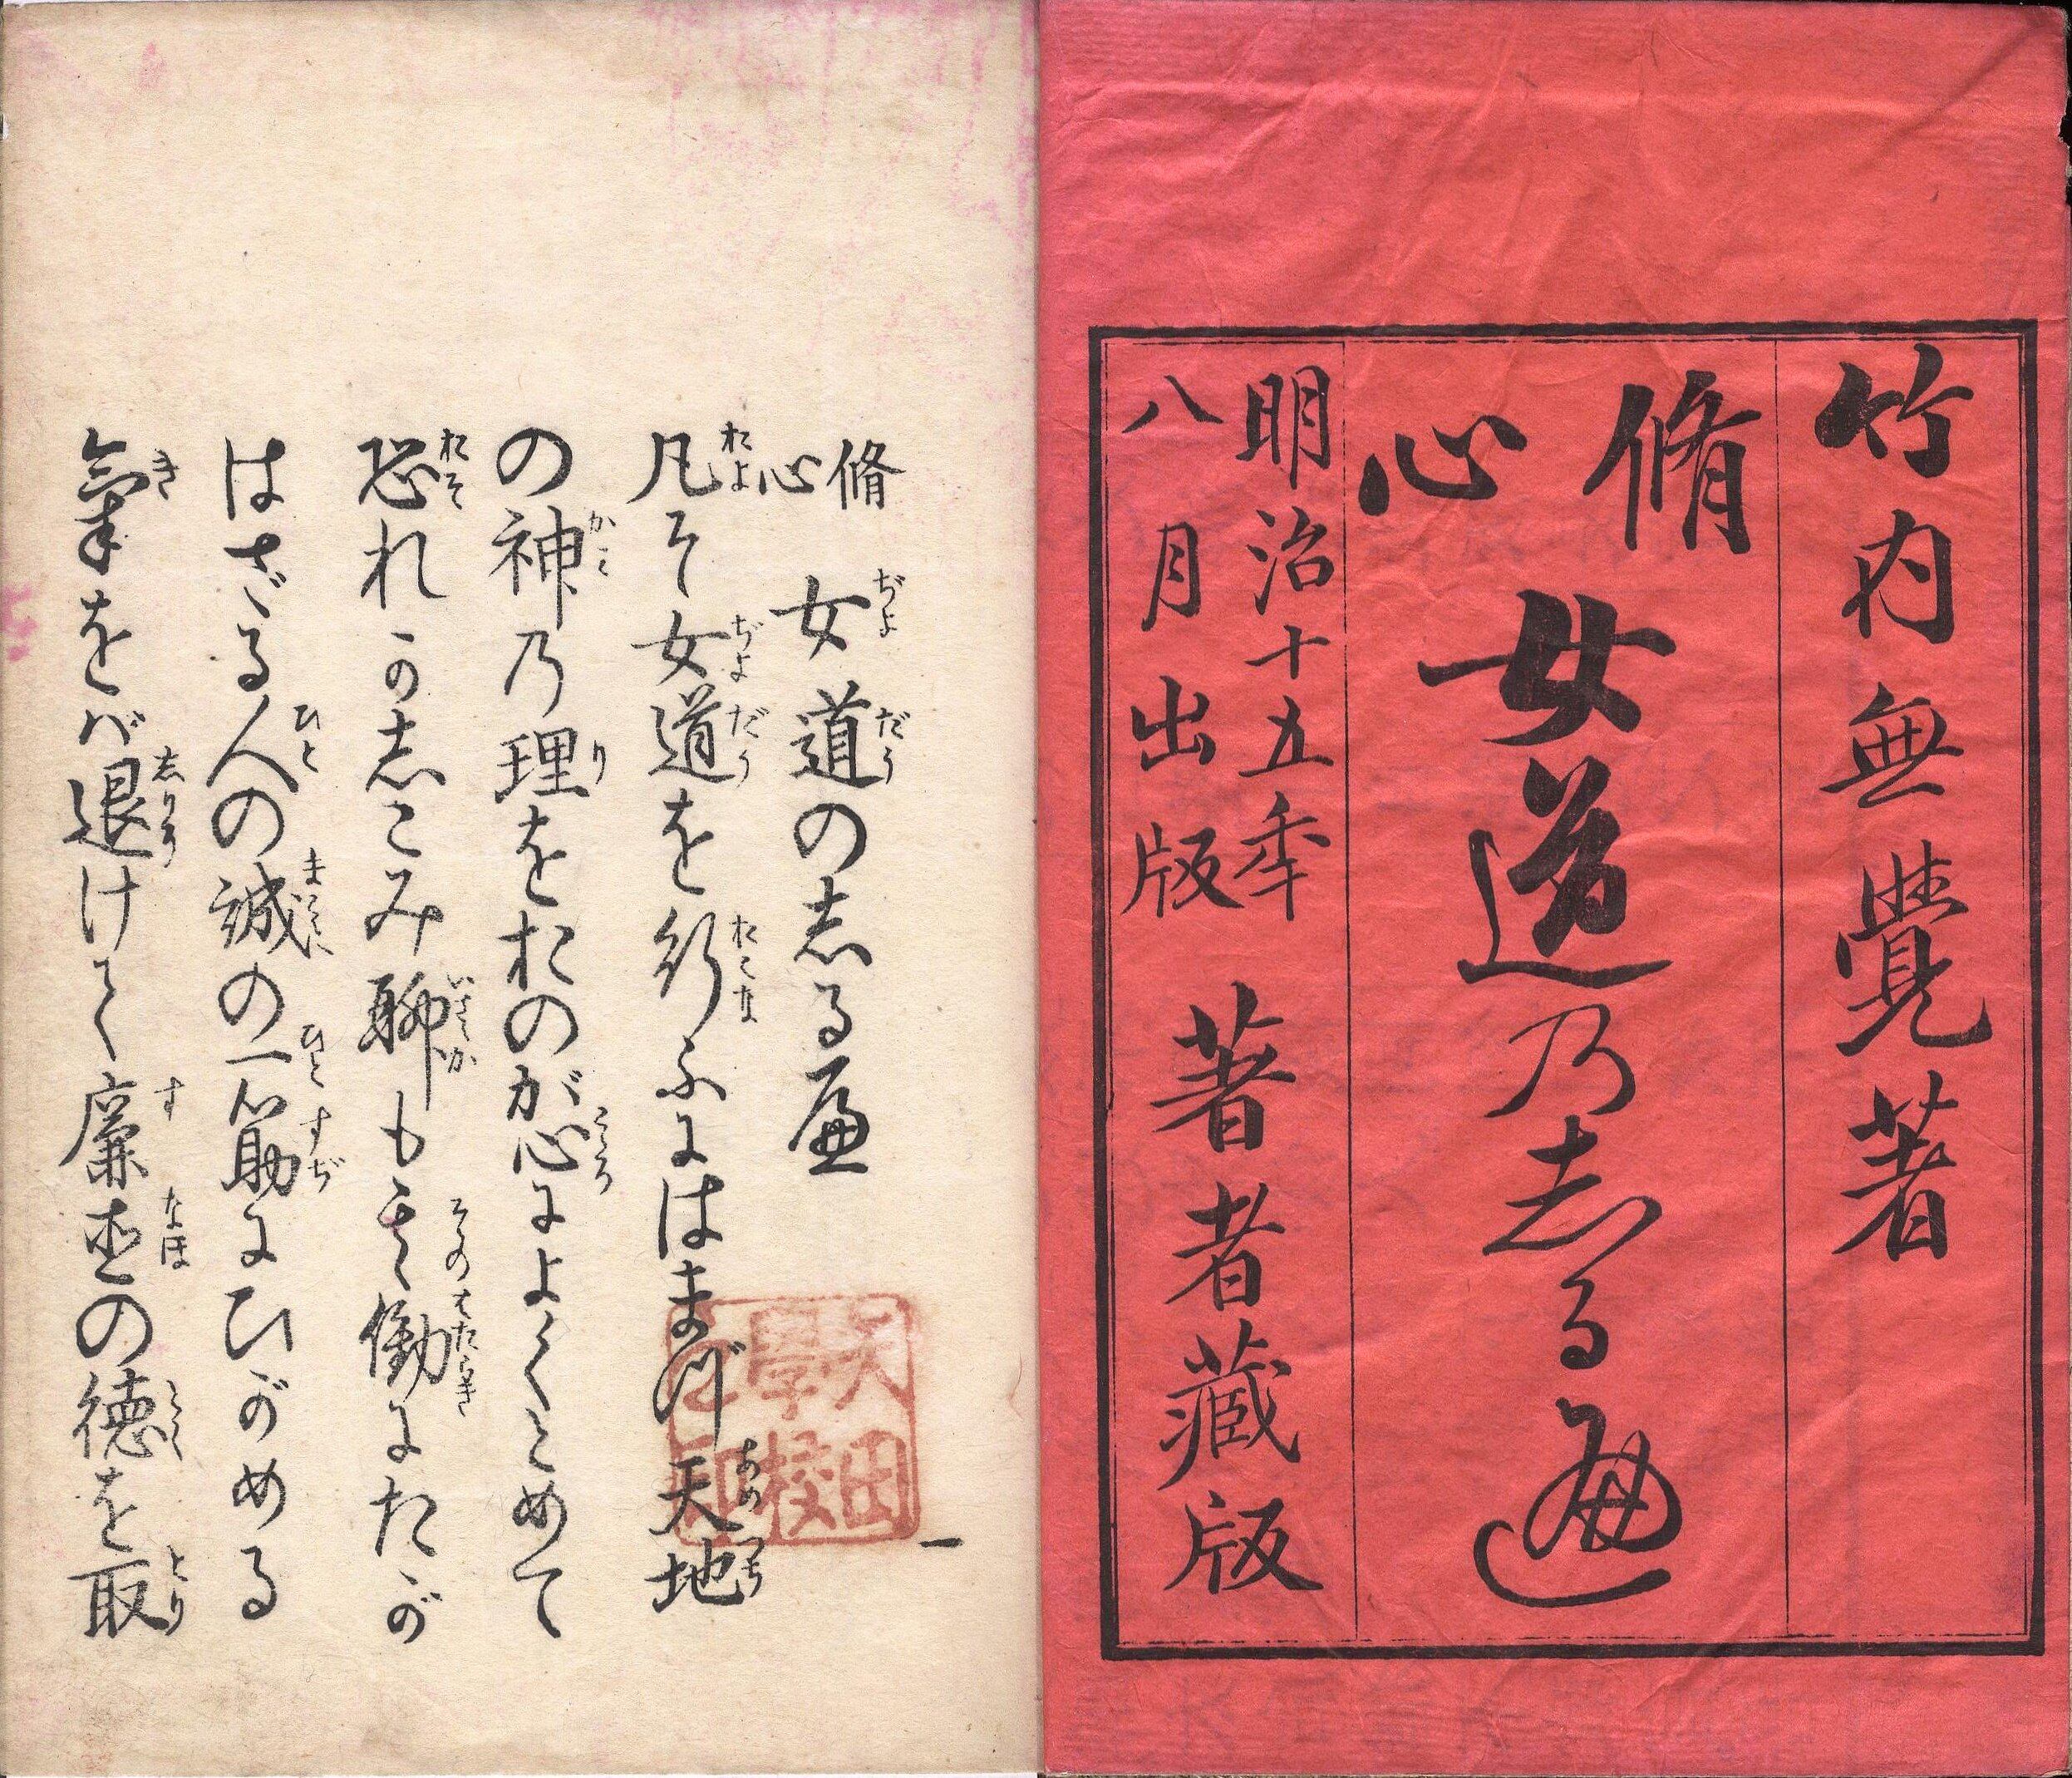 竹内無覺著
脩心 女道乃志る遍
明治十五年
八月出版 著者藏版
脩心 女道の志る邊
凡そ女道を行ふにはまづ天地
の神乃理をおのが心によくとめて
恐れかしこみ聊も其働にたが
はざる人の誠の一筋にひがめる
氣をバ退けて廉直の徳を取
一